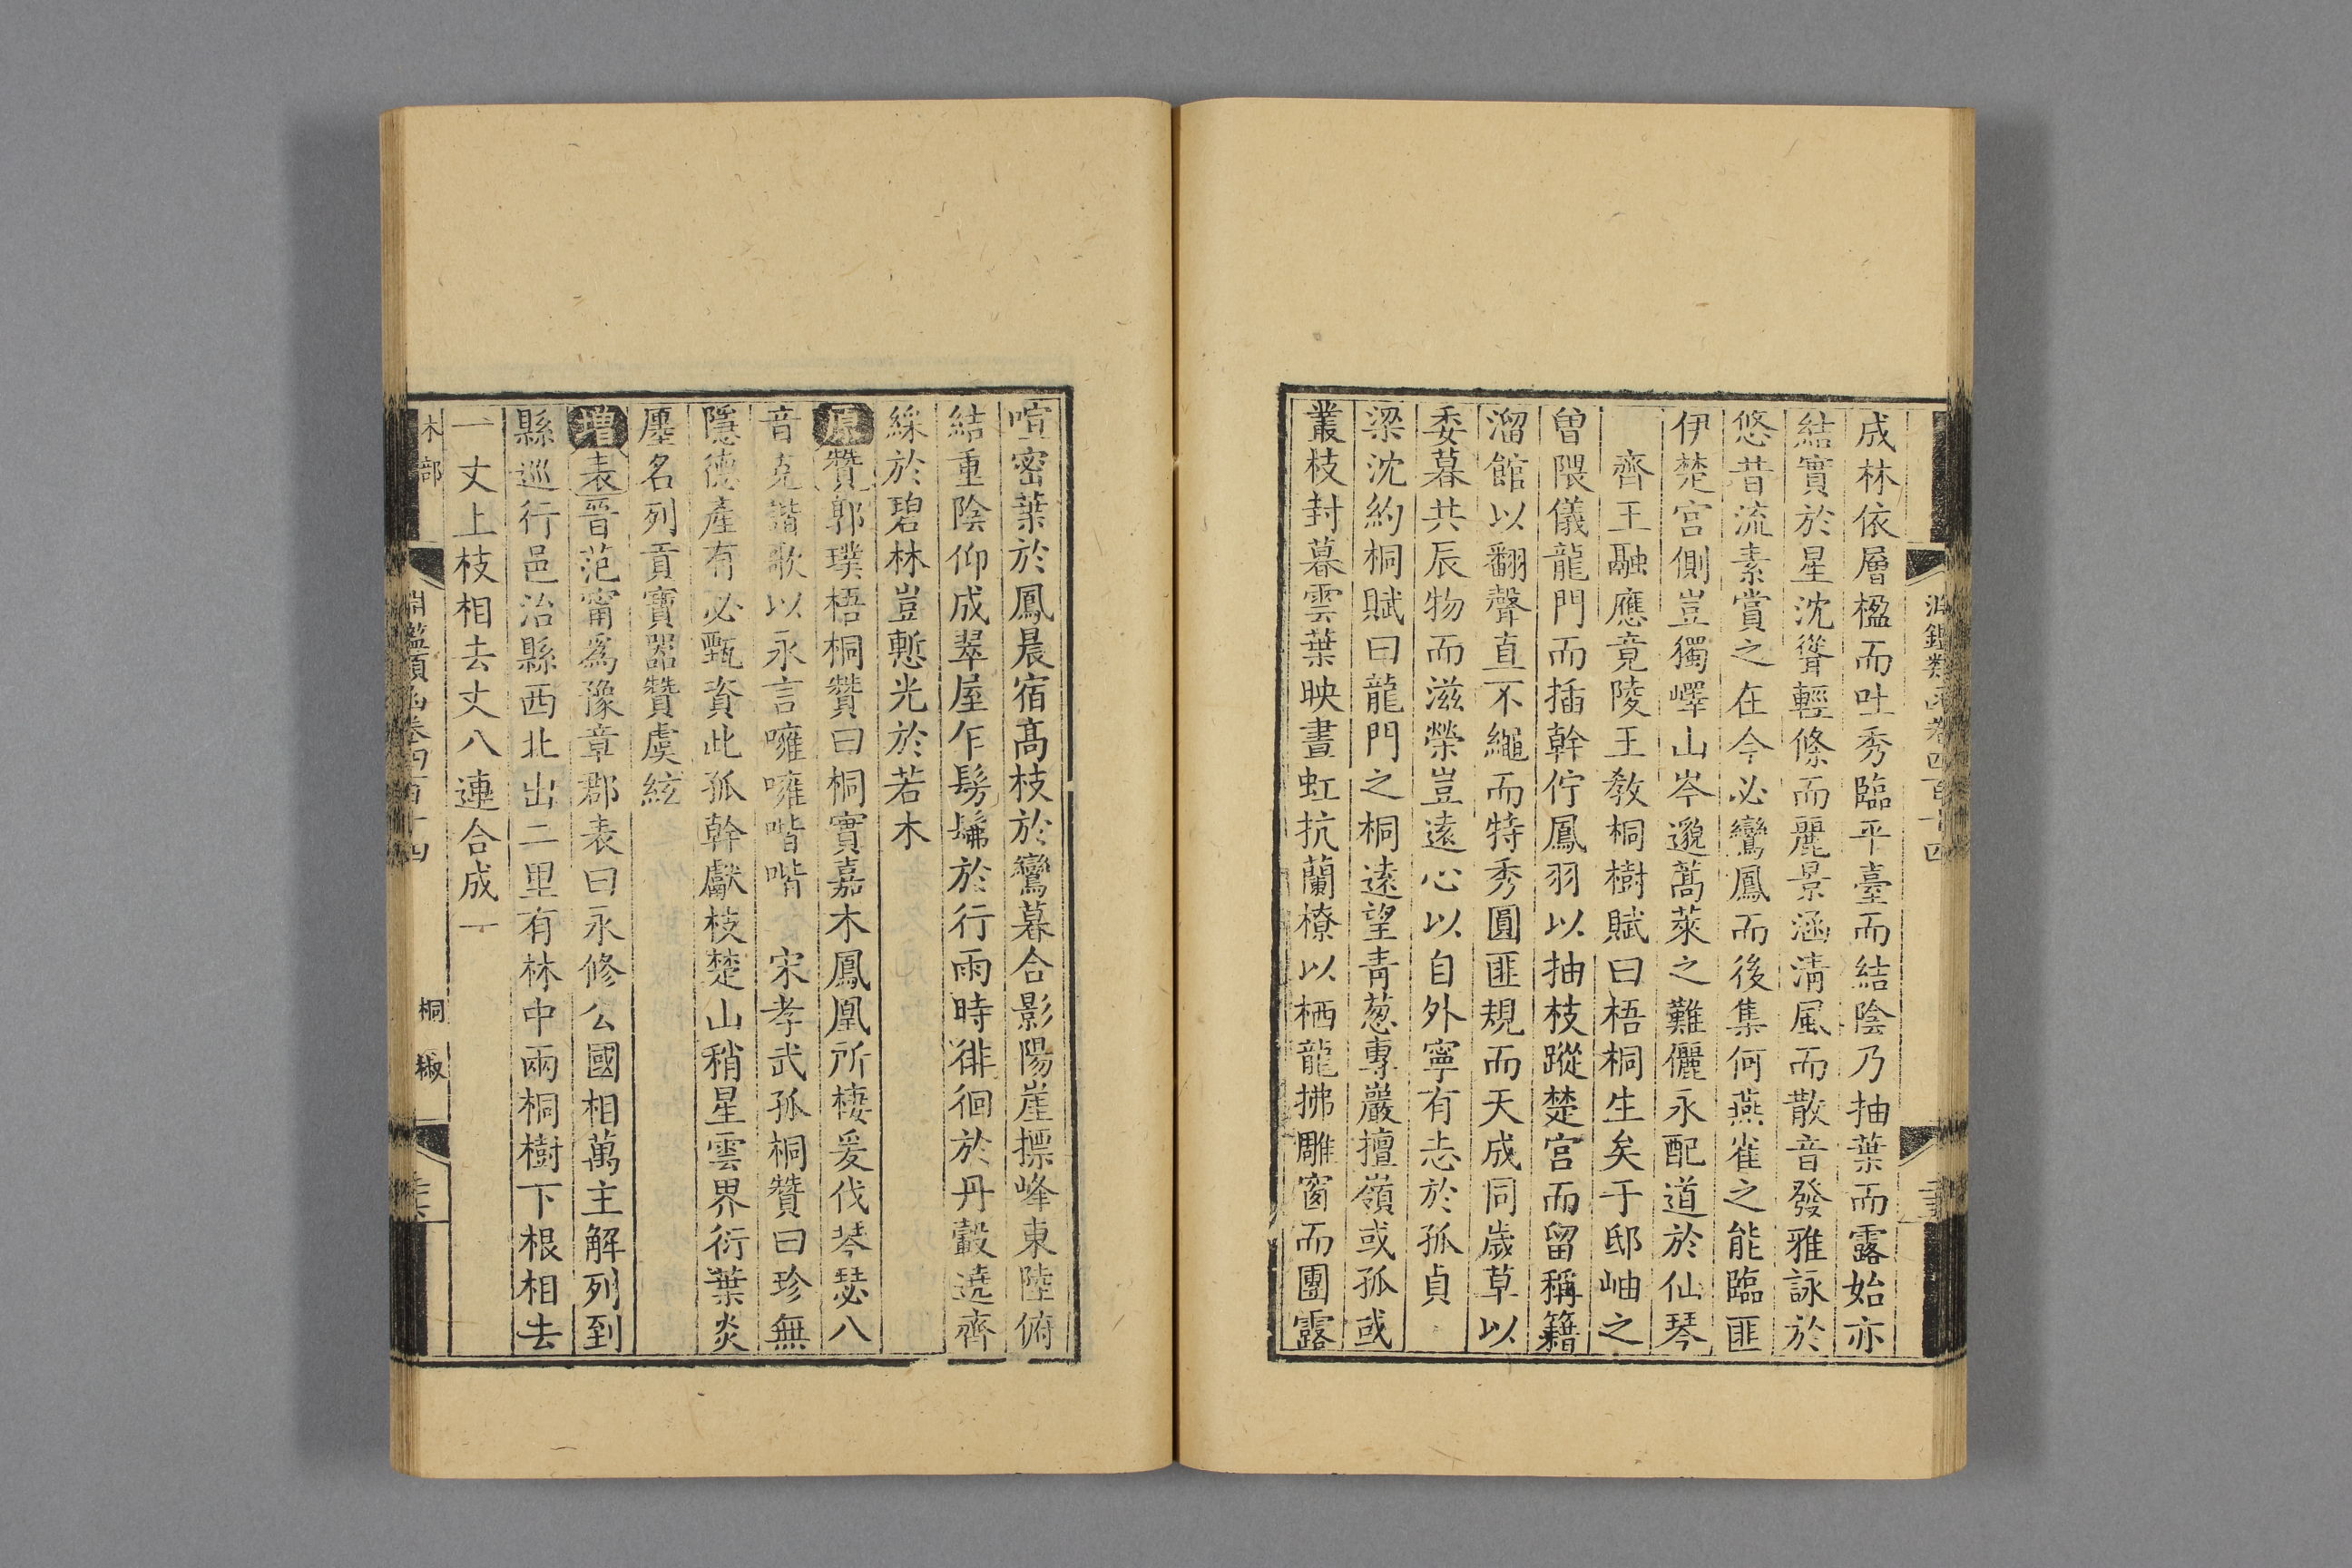 成林依層楹而吐秀臨平臺而結陰乃抽葉而露始亦
結實於星沈聳輕條而麗景涵清風而散音發雅詠於
悠昔流素賞之在今必鸞鳳而後集何燕雀之能臨匪
伊楚宮側豈獨嶧山岑邈蒿萊之難儷永配道於仙琴
齊王融應竟陵王教桐樹賦曰梧桐生矣于邸岫之
曾隈儀龍門而插幹佇鳳羽以抽枝蹤楚宮而留稱籍
溜館以翻聲直不繩而特秀圓匪規而天成同歲草以
委暮共辰物而滋榮豈遠心以自外寧有志於孤貞
梁沈約桐賦曰龍門之桐遠望青葱專巖擅嶺或孤或
叢枝封暮雲葉映晝虹抗蘭橑以栖龍拂雕窗而團露
喧密葉於鳳晨宿高枝於鸞暮合影陽崖摽峰東陸俯
結重陰仰成翠屋乍髣髴於行雨時徘徊於丹轂遶齊
綵於碧林豈慙光於若木
原贊郭璞梧桐贊曰桐實嘉木鳳凰所棲爰伐琴瑟八
音克諧歌以永言噰噰喈喈 宋孝武孤桐贊曰珍無
隱德產有必甄資此孤幹獻枝楚山稍星雲界衍葉炎
㕓名列貢寶器贊虞絃
增表晉范甯為豫章郡表曰永修公國相萬主解列到
縣巡行邑治縣西北出二里有林中兩桐樹下根相去
一丈上枝相去丈八連合成一
木部 淵鑑類函卷四百十四 桐 椒